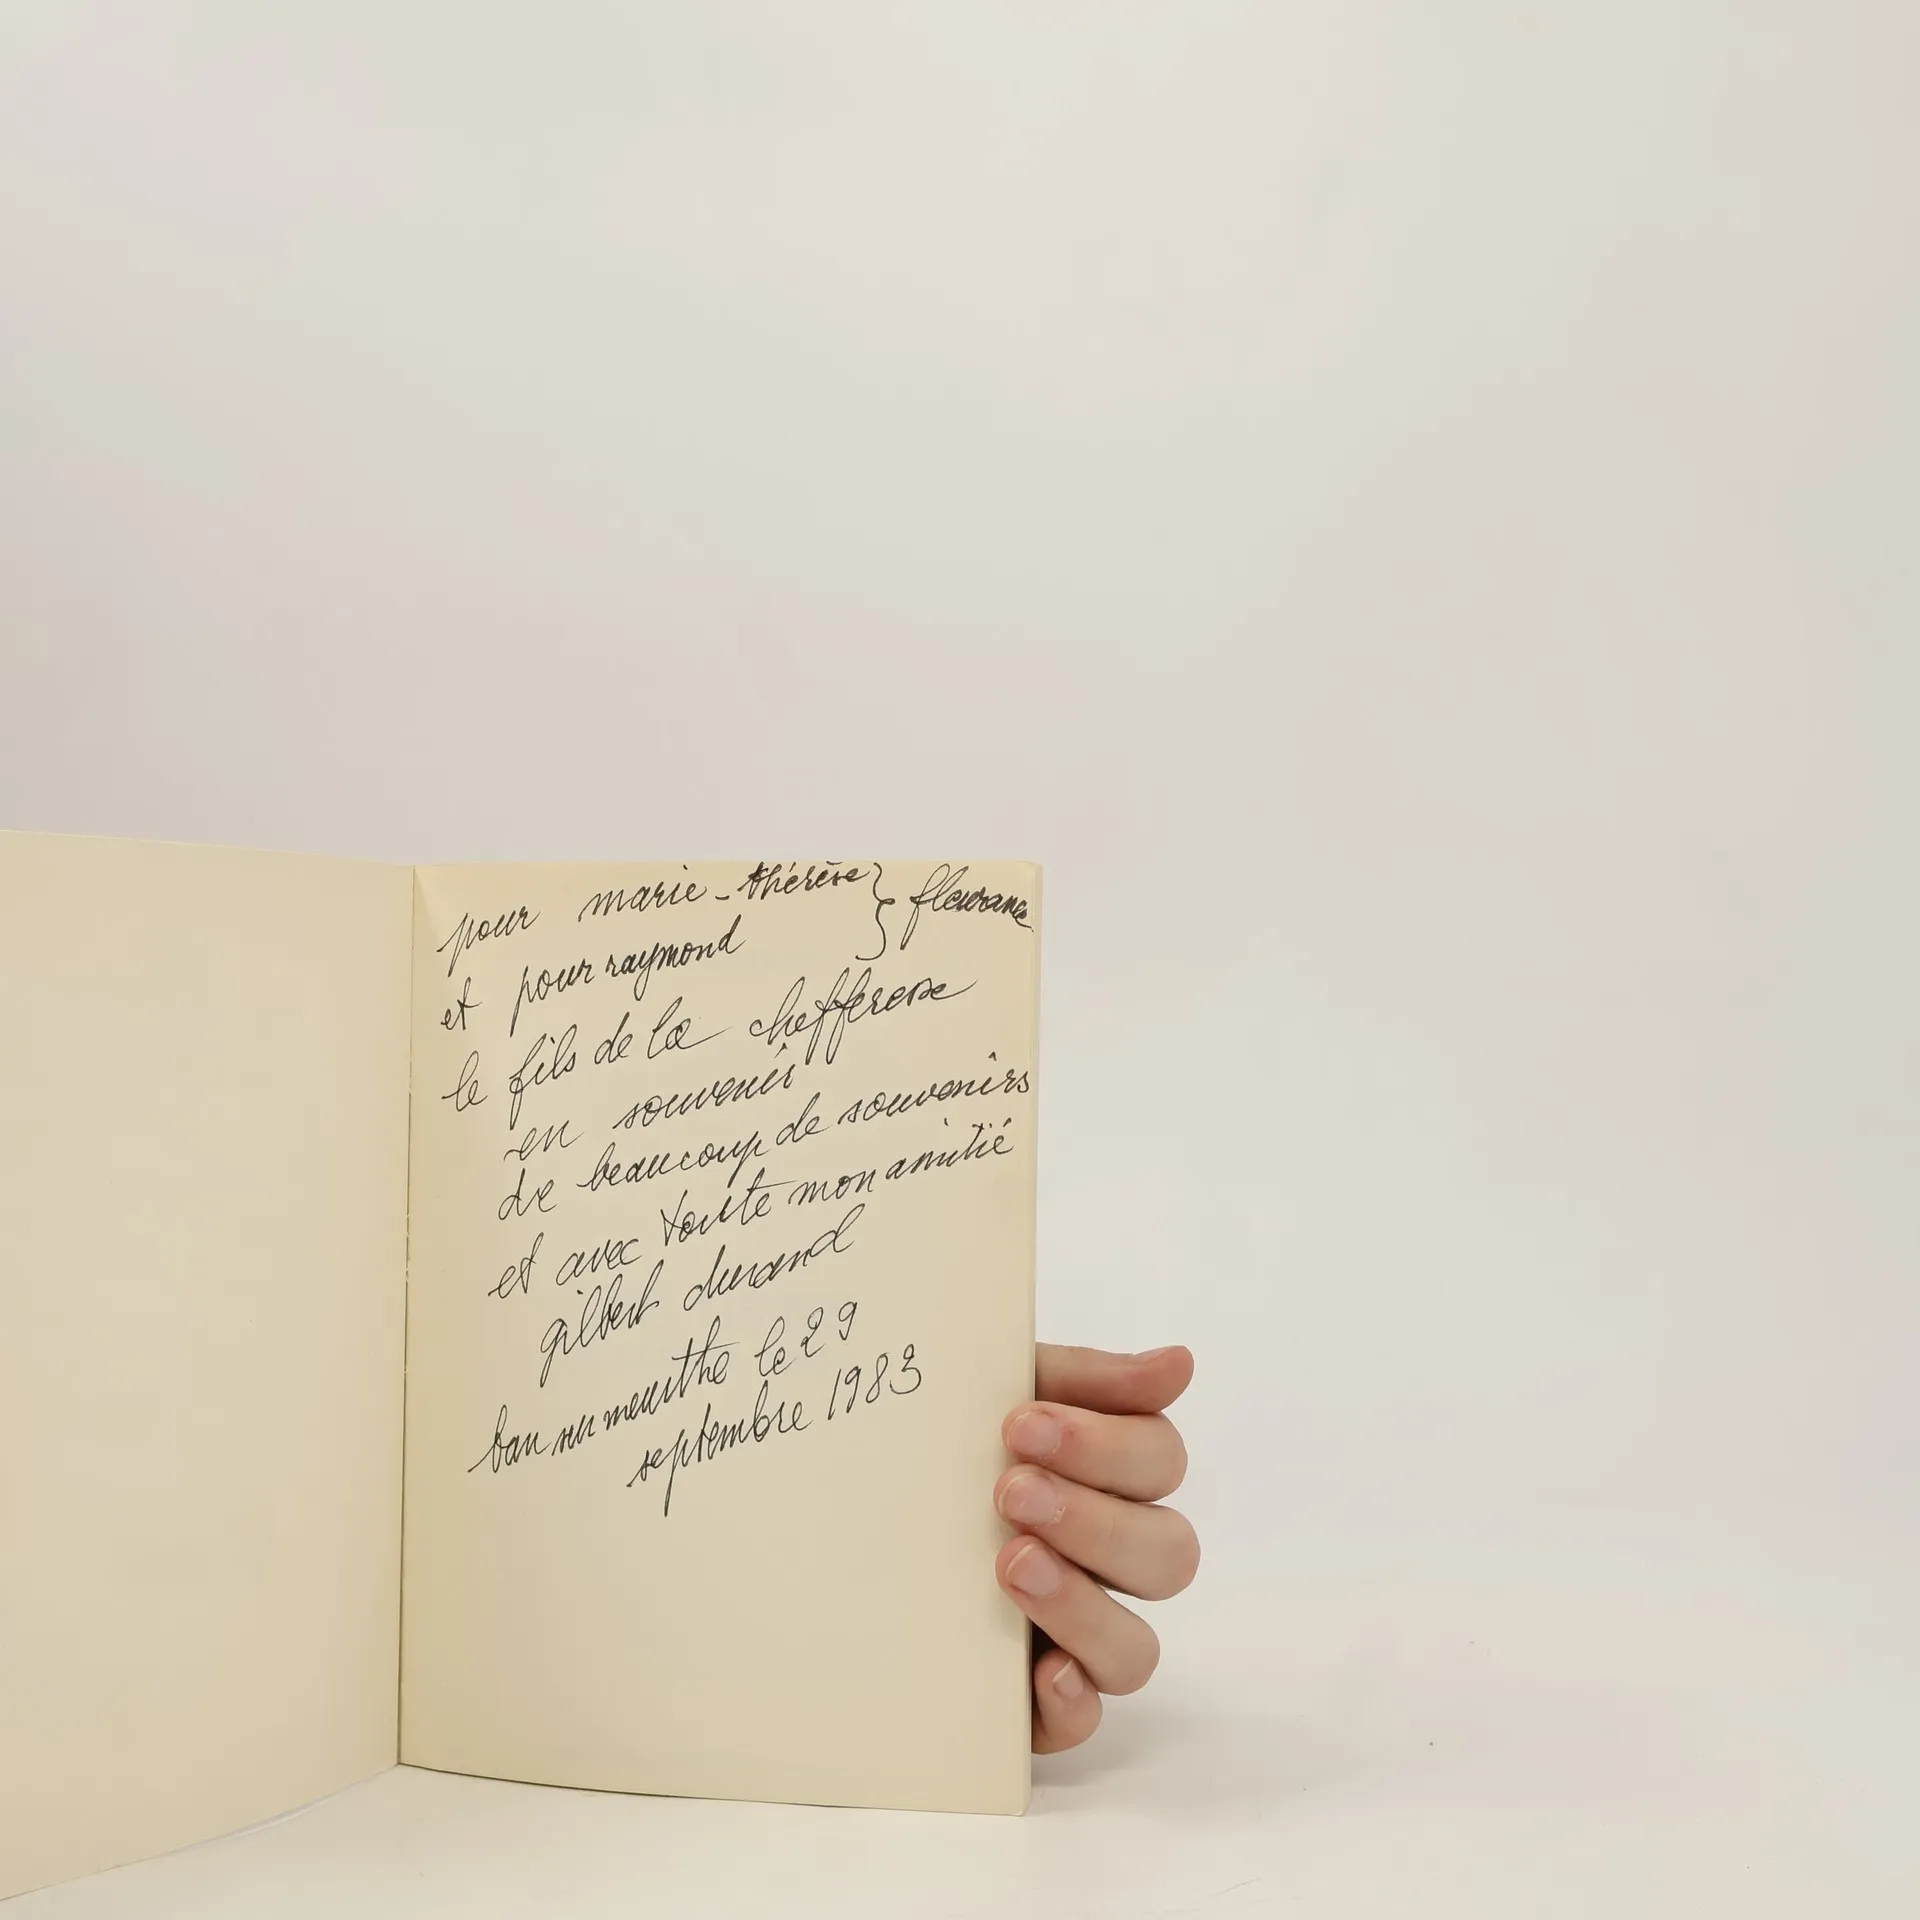 pour marie-thérèse } fleurance
et pour raymond
le fils de la chefferesse
en souvenir
de beaucoup de souvenirs
et avec toute mon amitié
gilbert durand
ban sur meurthe le 29
septembre 1983